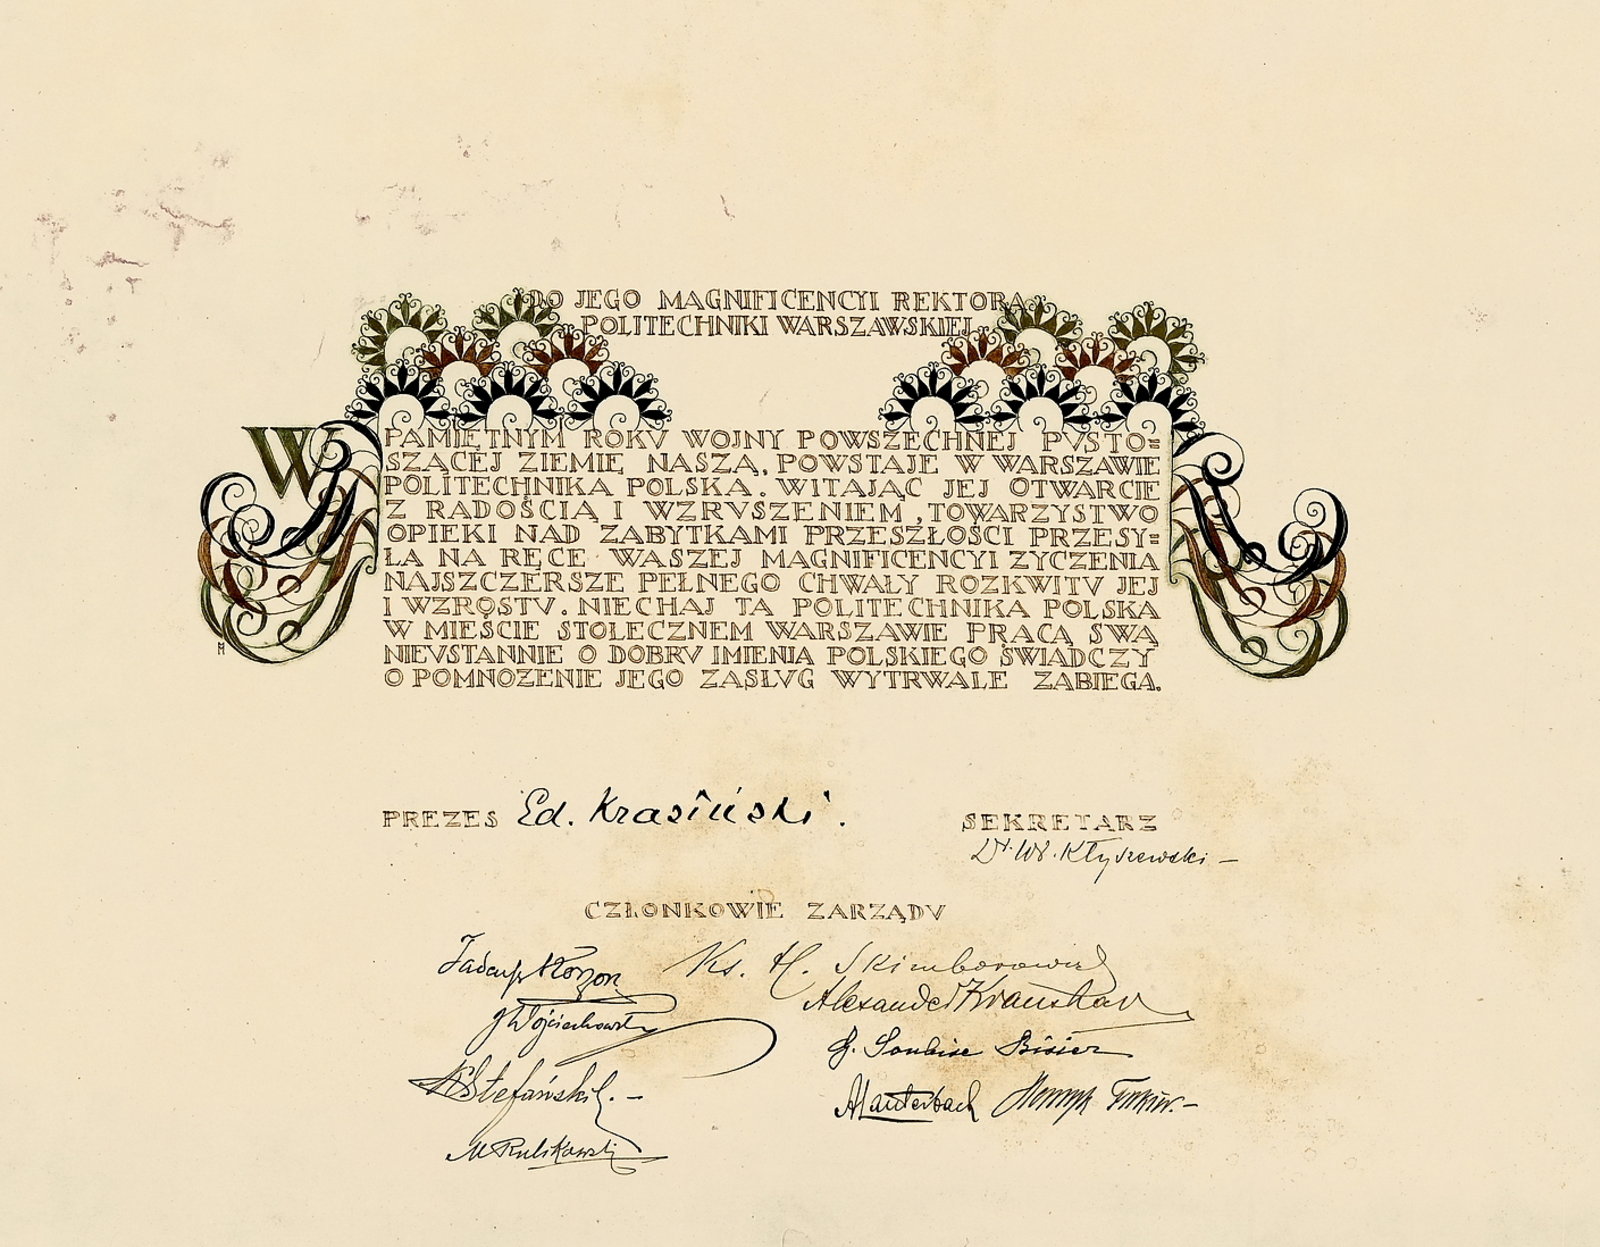 DO JEGO MAGNIFICENCYI REKTORA
POLITECHNIKI WARSZAWSKIEJ
W PAMIĘTNYM ROKV WOJNY POWSZECHNEJ PVSTO=
SZĄCEJ ZIEMIĘ NASZĄ, POWSTAJE W WARSZAWIE
POLITECHNIKA POLSKA. WITAJĄC JEJ OTWARCIE
Z RADOŚCIĄ I WZRVSZENIEM, TOWARZYSTWO
OPIEKI NAD ZABYTKAMI PRZESZŁOŚCI PRZESY=
ŁA NA RĘCE WASZEJ MAGNIFICENCYI ZYCZENIA
NAJSZCZERSZE PEŁNEGO CHWAŁY ROZKWITV JEJ
I WZROSTV. NIECHAJ TA POLITECHNIKA POLSKA
W MIEŚCIE STOŁECZNEM WARSZAWIE PRACĄ SWĄ
NIEVSTANNIE O DOBRV IMIENIA POLSKIEGO ŚWIADCZY
O POMNOŻENIE JEGO ZASŁVG WYTRWALE ZABIEGA.
PREZES Ed. Krasiński.
SEKRETARZ
Dr. Wł. Kłyszewski –
CZŁONKOWIE ZARZĄDV
Tadeusz Korzon
Ks. H. Skimborowicz
Alexander Kraushar
J Wojciechowski
Soubise Bisier
K Stefański. –
A Lauterbach
M Rulikowski